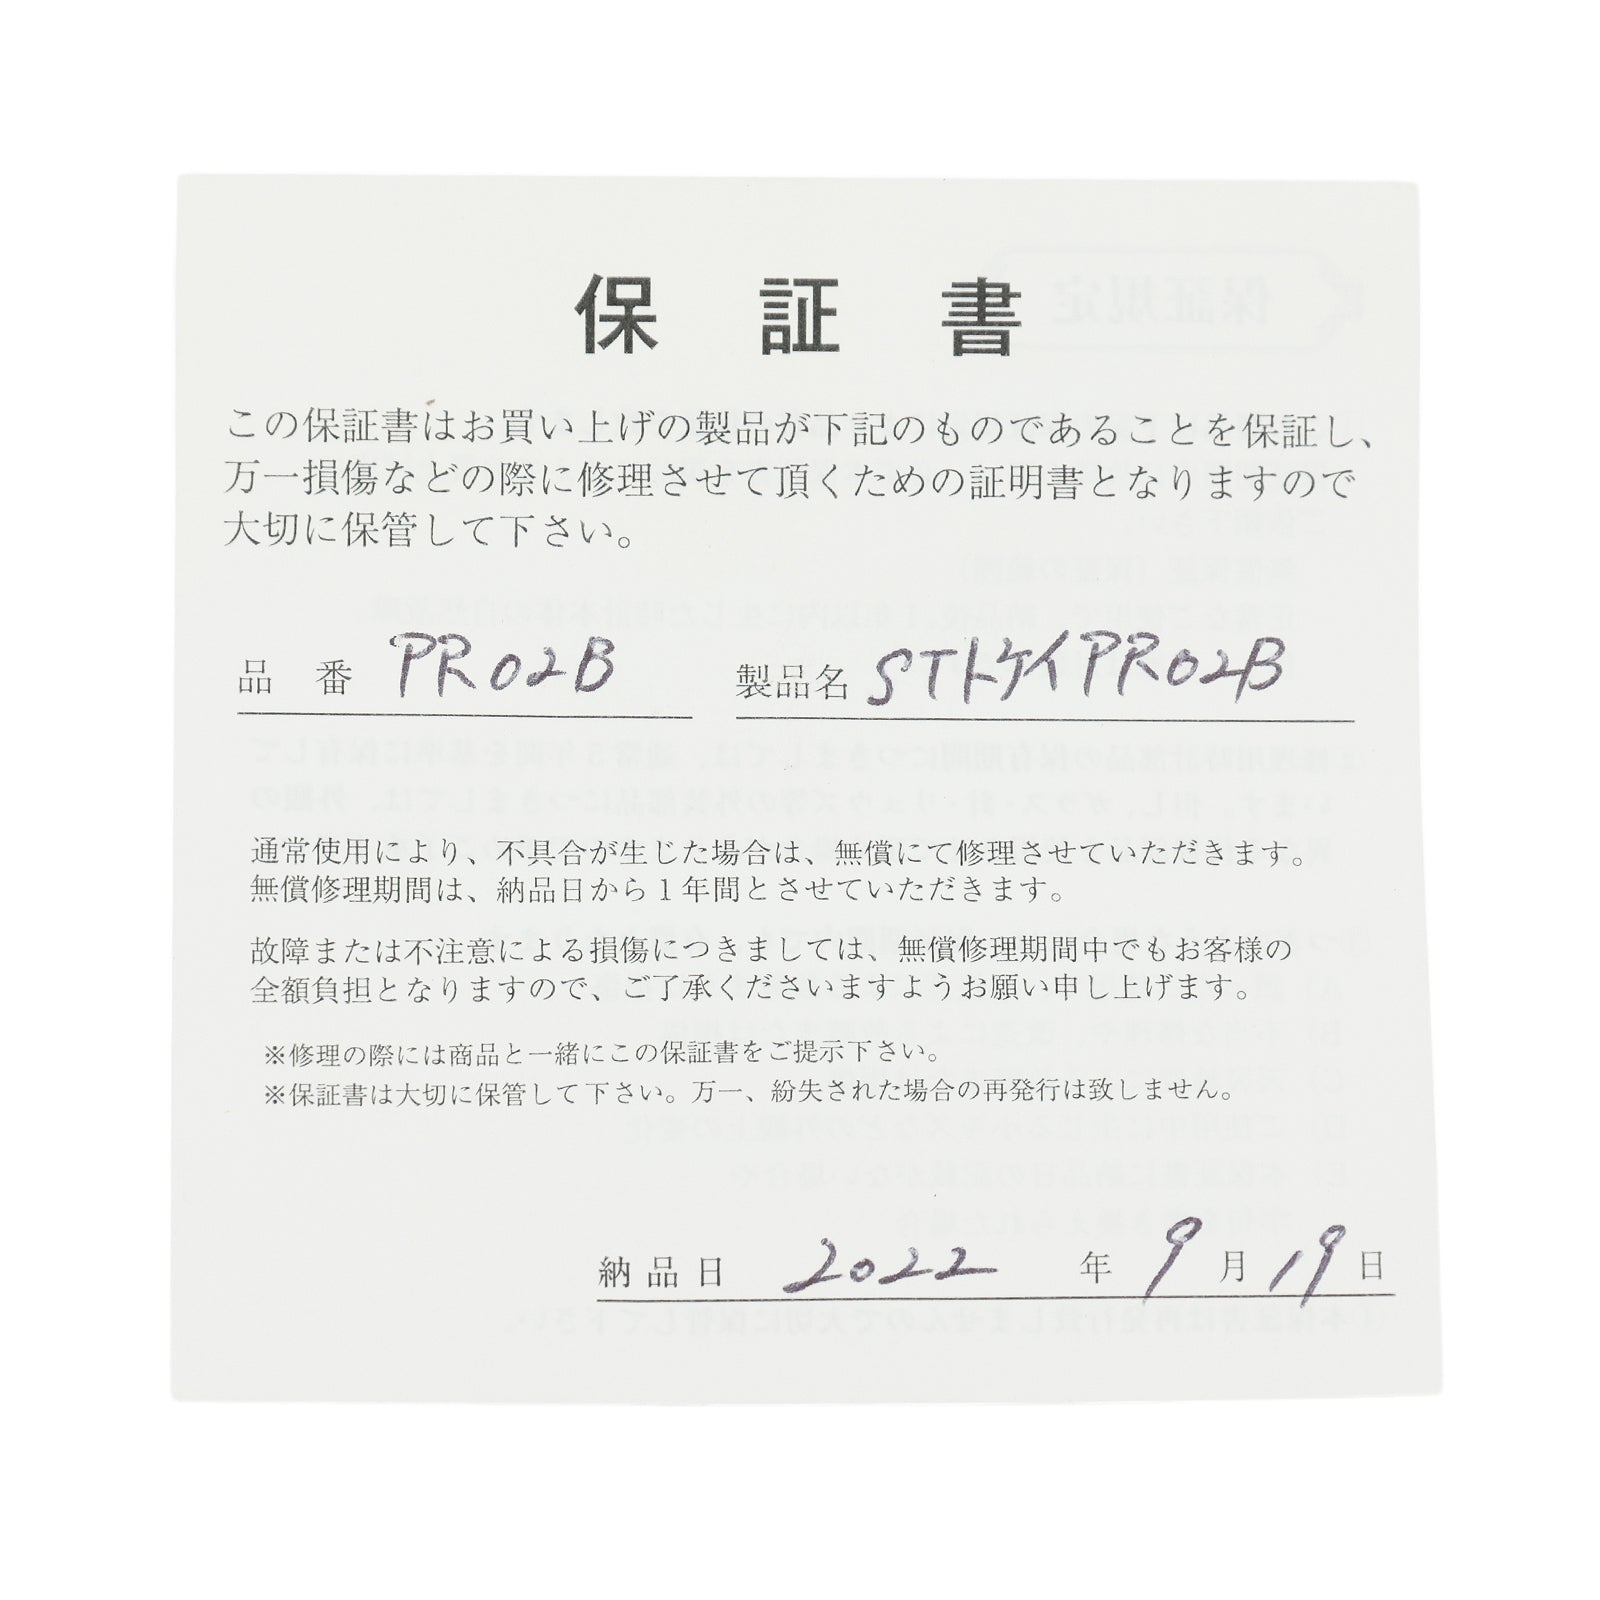 保証書
この保証書はお買い上げの製品が下記のものであることを保証し、
万一損傷などの際に修理させて頂くための証明書となりますので
大切に保管して下さい。
品番 PR02B 製品名 STトケイPR02B
通常使用により、不具合が生じた場合は、無償にて修理させていただきます。
無償修理期間は、納品日から1年間とさせていただきます。
故障または不注意による損傷につきましては、無償修理期間中でもお客様の
全額負担となりますので、ご了承くださいますようお願い申し上げます。
※修理の際には商品と一緒にこの保証書をご提示下さい。
※保証書は大切に保管して下さい。万一、紛失された場合の再発行は致しません。
納品日 2022 年 9 月 19 日